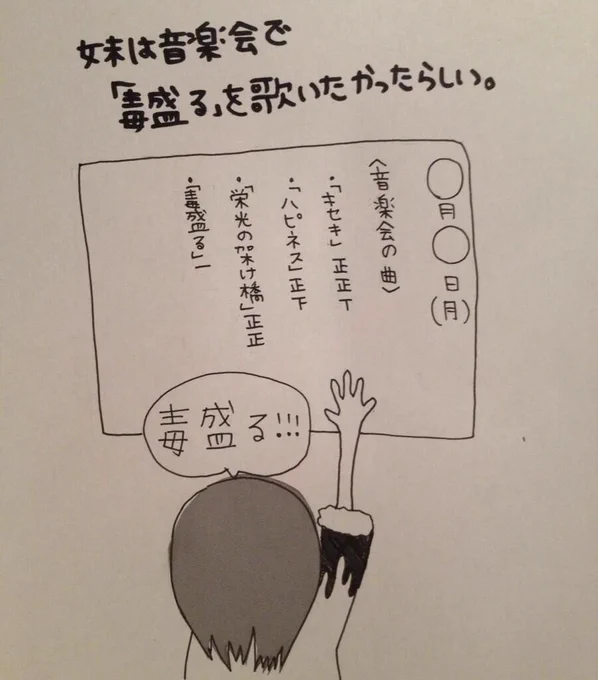 妹は音楽会で
「毒盛る」を歌いたかったらしい。
○月○日(月)
〈音楽会の曲〉
・「キセキ」正正丅
・「ハピネス」正下
・「栄光の架け橋」正正
・「毒盛る」一
毒盛る!!!